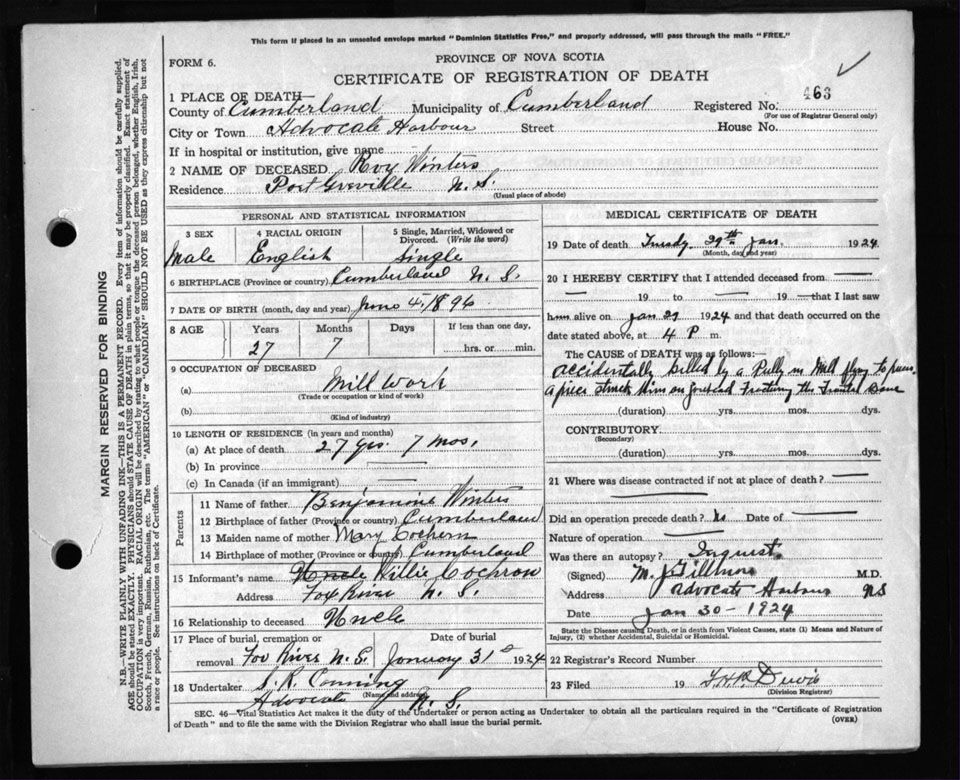 This form if placed in an unsealed envelope marked "Dominion Statistics Free," and properly addressed, will pass through the mails "FREE."
FORM 6.
PROVINCE OF NOVA SCOTIA
CERTIFICATE OF REGISTRATION OF DEATH
1 PLACE OF DEATH—
County of Cumberland Municipality of Cumberland Registered No. 463
(For use of Registrar General only)
City or Town Advocate Harbour Street House No.
If in hospital or institution, give name
2 NAME OF DECEASED Roy Winters
Residence Port Greville N.S.
(Usual place of abode)
PERSONAL AND STATISTICAL INFORMATION
3 SEX 4 RACIAL ORIGIN 5 Single, Married, Widowed or Divorced. (Write the word)
Male English Single
6 BIRTHPLACE (Province or country) Cumberland N.S.
7 DATE OF BIRTH (month, day and year) June 4, 1896
8 AGE Years Months Days If less than one day,
27 7 hrs. or min.
9 OCCUPATION OF DECEASED
(a) Mill Work
(Trade or occupation or kind of work)
(b)
(Kind of industry)
10 LENGTH OF RESIDENCE (in years and months)
(a) At place of death 27 yrs. 7 mos.
(b) In province
(c) In Canada (if an immigrant)
Parents
11 Name of father Benjamine Winters
12 Birthplace of father (Province or country) Cumberland
13 Maiden name of mother Mary Cochern
14 Birthplace of mother (Province or country) Cumberland
15 Informant's name Uncle Willie Cochron
Address Fox River N.S.
16 Relationship to deceased Uncle
17 Place of burial, cremation or removal Date of burial
Fox River N.S. January 31 1924
18 Undertaker S. R. Conning
(Name and address)
Advocate N.S.
MEDICAL CERTIFICATE OF DEATH
19 Date of death Tuesdy 29th Jan. 1924
(Month, day and year)
20 I HEREBY CERTIFY that I attended deceased from
19 to 19 that I last saw
him alive on Jan 29 1924 and that death occurred on the
date stated above, at 4 P m.
The CAUSE OF DEATH was as follows:
accidentally killed by a Pully in Mill flying to pieces.
a piece struck him on forehead Fracturing the Frontal Bone
(duration) yrs. mos. dys.
CONTRIBUTORY
(Secondary)
(duration) yrs. mos. dys.
21 Where was disease contracted if not at place of death?
Did an operation precede death? No Date of
Nature of operation
Was there an autopsy? Inquest
(Signed) M. M.D.
Address Advocate Harbour NS
Date Jan 30 - 1924
State the Disease causing Death, or in death from Violent Causes, state (1) Means and Nature of
Injury, (2) whether Accidental, Suicidal or Homicidal.
22 Registrar's Record Number
23 Filed 19
(Division Registrar)
SEC. 46—Vital Statistics Act makes it the duty of the Undertaker or person acting as Undertaker to obtain all the particulars required in the "Certificate of Registration
of Death" and to file the same with the Division Registrar who shall issue the burial permit. (OVER)
MARGIN RESERVED FOR BINDING
N.B.—WRITE PLAINLY WITH UNFADING INK—THIS IS A PERMANENT RECORD. Every item of information should be carefully supplied.
AGE should be stated EXACTLY. PHYSICIANS should STATE CAUSE OF DEATH in plain terms, so that it may be properly classified. Exact statement of
OCCUPATION is very important. RACIAL ORIGIN will be described by stating to what people or tongue the deceased person belonged, whether English, Irish,
Scotch, French, German, Russian, Ruthenian, etc. The terms "AMERICAN" or "CANADIAN" SHOULD NOT BE USED as they express citizenship but not
a race or people. See instructions on back of Certificate.